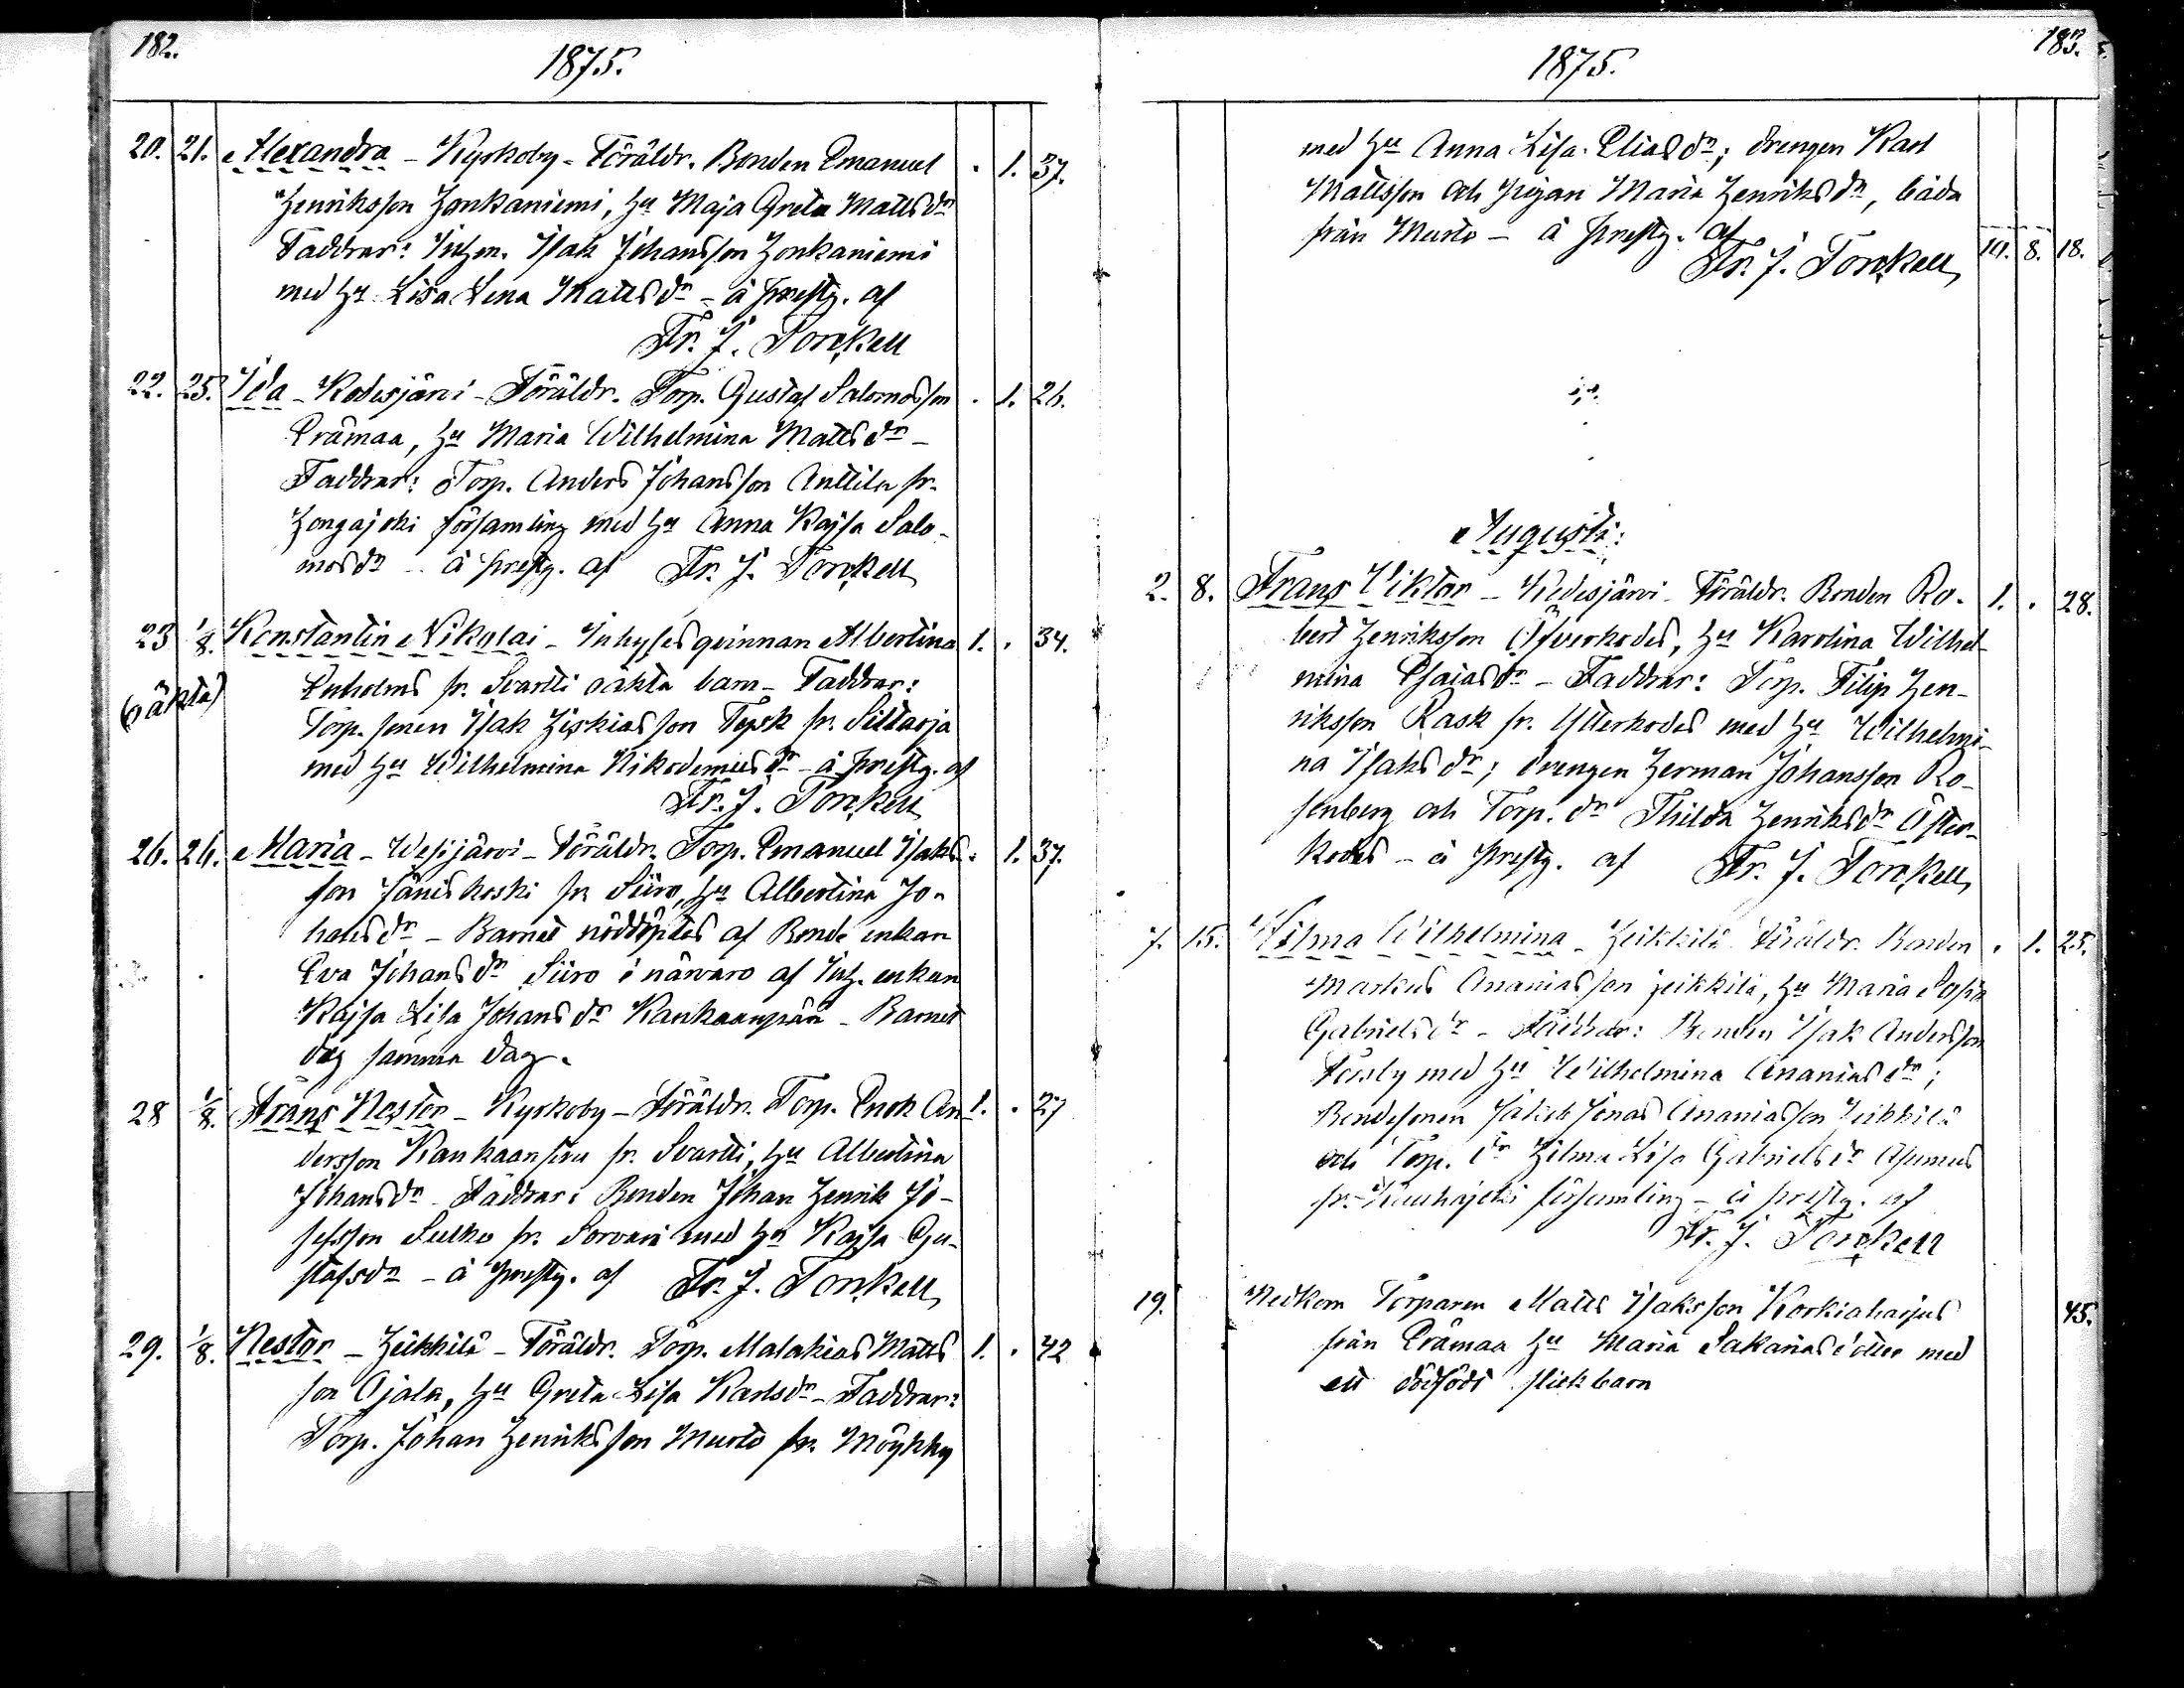 182.
1875.
20. 21. Alexandra - Kyrkoby - Föräldr. Bonden Emanuel . 1. 37.
Henriksson Honkaniemi, Hu Maja Greta Mattsdr
Faddrar: Inhsn. Isak Johansson Honkaniemi
med Hu Lisa Lena Mattsdr - å prestg. af
Fr. J. Torckell
22. 25. Ida - Kodesjärvi - Föräldr. Torp. Gustaf Salomosson . 1. 26.
Erämaa, Hu Maria Wilhelmina Mattsdr -
Faddrar: Torp. Anders Johansson Anttila fr.
Hongajoki församling med Hu Anna Kajsa Salo-
mosdr - å prestg. af Fr. J. Torckell
23 1/8. Konstantin Nikolai - Inhysesqvinnan Albertina 1. . 34.
(oäkta) Enholms fr. Svartti oäkta barn - Faddrar:
Torp. sonen Isak Hiskiasson Tysk fr. Villarja
med Hu Wilhelmina Nikodemusdr - å prestg. af
Fr. J. Torckell
26. 26. Maria - Wesijärvi - Föräldr. Torp. Emanuel Isaks- . 1. 37.
son Jäniskoski fr. Siiro, Hu Albertina Jo-
hansdr - Barnet nöddöptes af Bonde enkan
Eva Johansdr Siiro i närvaro af Inh. enkan
Kajsa Lisa Johansdr Kankaanpää - Barnet
dog samma dag.
28 1/8. Frans Nestor - Kyrkoby - Föräldr. Torp. Enok An- 1. . 27
dersson Kankaansivu fr. Svartti, Hu Albertina
Johansdr - Faddrar: Bonden Johan Henrik Jo-
sefsson Sulko fr. Sorvari med Hu Kajsa Gu-
stafsdr - å prestg. af Fr. J. Torckell
29. 1/8. Nestor - Heikkilä - Föräldr. Torp. Malakias Matts 1. . 42
son Ojala, Hu Greta Lisa Karlsdr - Faddrar:
Torp. Johan Henriksson Murto fr. Möykky
183.
1875.
med Hu Anna Lisa Eliasdr; drengen Karl
Mattsson och pigan Maria Henriksdr, båda
från Murto - å prestg. af
Fr. J. Torckell 10. 8. 18.
Augusti:
2. 8. Frans Viktor - Kodesjärvi - Föräldr. Bonden Ro- 1. . 28.
bert Henriksson Öfverkodes, Hu Karolina Wilhel-
mina Esaiasdr - Faddrar: Torp. Filip Hen-
riksson Rask fr. Ytterkodes med Hu Wilhelmi-
na Isaksdr; drengen Herman Johansson Ro-
senberg och Torp. dr Thilda Henriksdr Öfver-
kodes - å prestg. af Fr. J. Torckell
7. 15. Hilma Wilhelmina - Heikkilä Föräldr. Bonden . 1. 25.
Markus Ananiasson Heikkilä, Hu Maria Sofia
Gabrielsdr - Faddrar: Bonden Isak Andersson
med Hu Wilhelmina Ananiasdr;
Bondesonen Jakob Jonas Ananiasson Heikkilä
och Torp. dr Hilma Lisa Gabrielsdr Asumus
fr. Kauhajoki församling - å prestg. af
Fr. J. Torckell
19. Nedkom Torparen Matts Isaksson Korkiaharjus 45.
från Erämaa Hu Maria Sakariasdotter med
ett dödfödt flickbarn